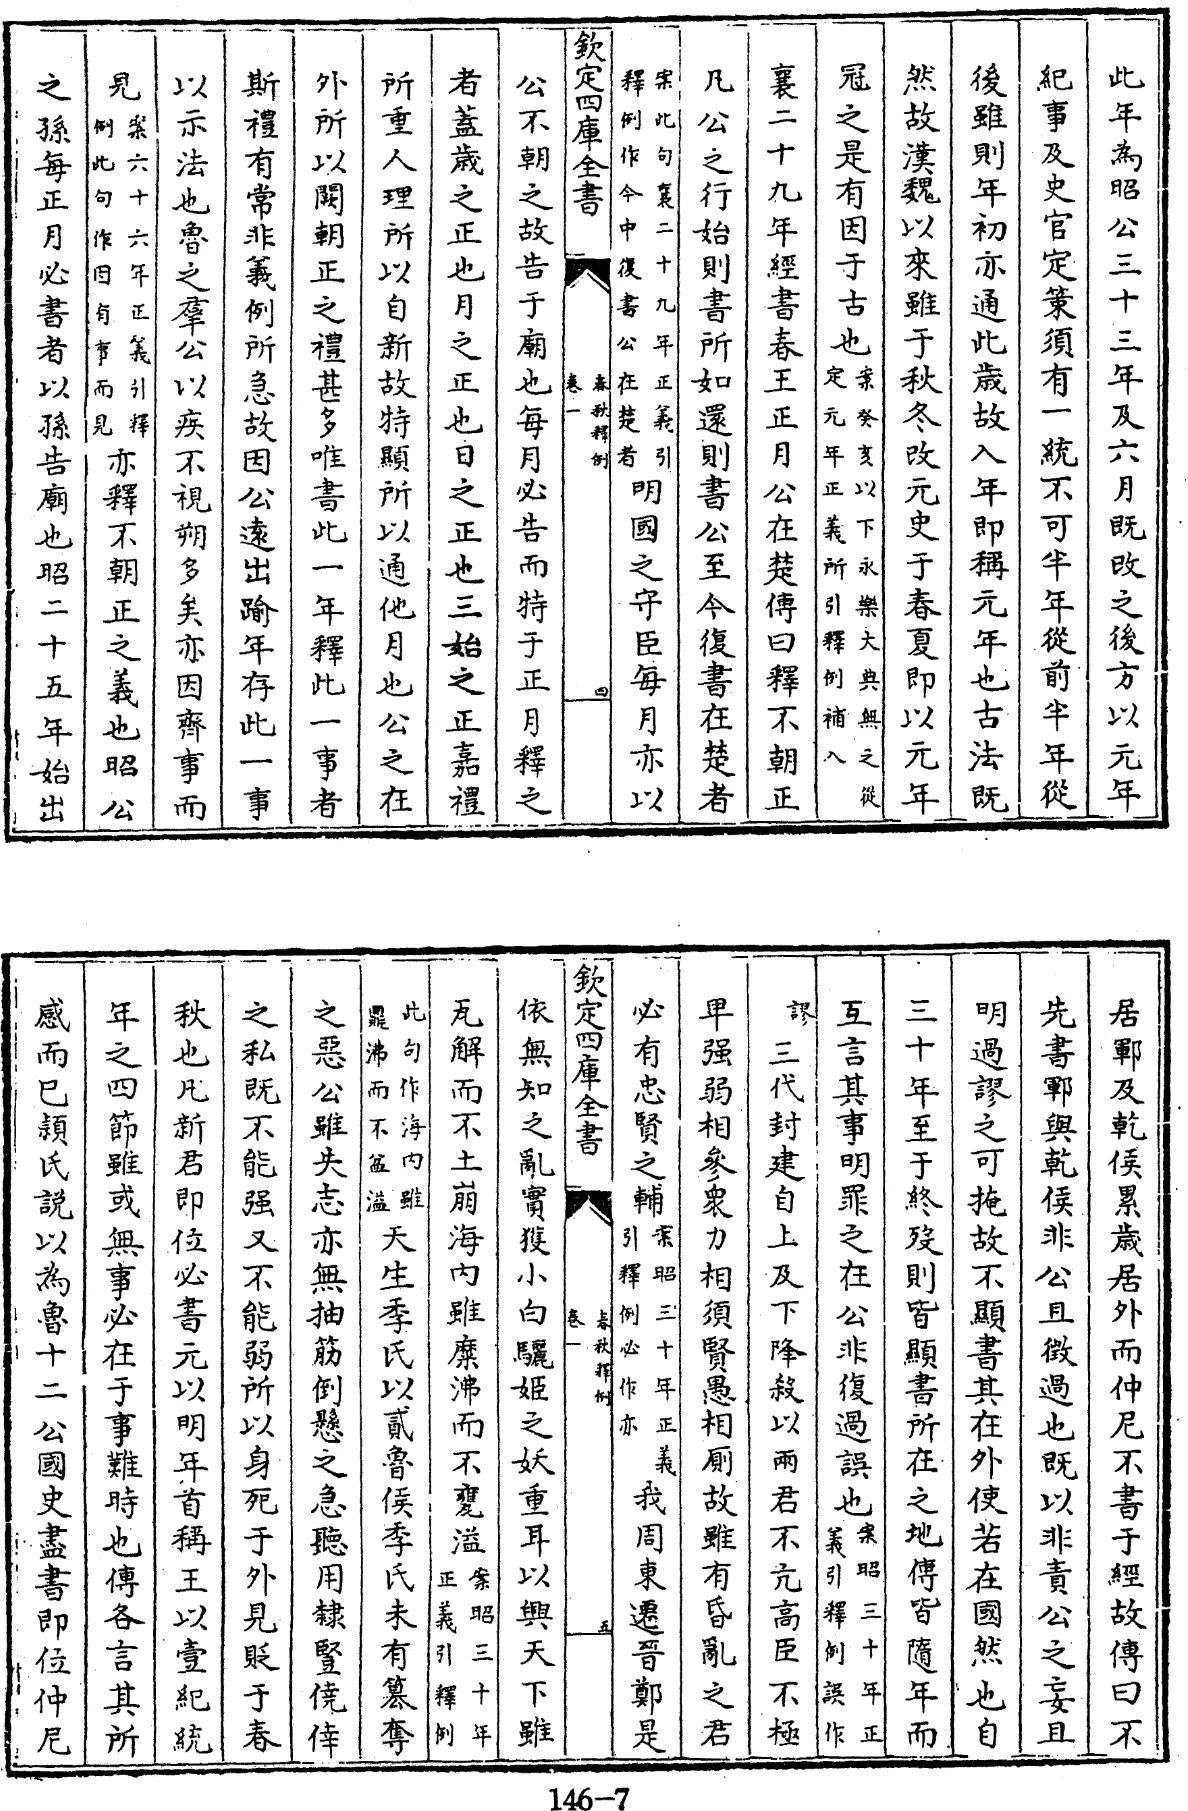 此年為昭公三十三年及六月既改之後方以元年
紀事及史官定䇿須有一統不可半年從前半年從
後雖則年初亦通此歳故入年即稱元年也古法既
然故漢魏以來雖于秋冬改元史于春夏即以元年
冠之是有因于古也案癸亥以下永樂大典無之從定元年正義所引釋例補入
襄二十九年經書春王正月公在楚傳曰釋不朝正
凡公之行始則書所如還則書公至今復書在楚者
案此句襄二十九年正義引釋例作今中復書公在楚者明國之守臣每月亦以
欽定四庫全書
春秋釋例
卷一
四
公不朝之故告于廟也每月必告而特于正月釋之
者蓋歳之正也月之正也日之正也三始之正嘉禮
所重人理所以自新故特顯所以通他月也公之在
外所以闕朝正之禮甚多唯書此一年釋此一事者
斯禮有常非義例所急故因公遠出踰年存此一事
以示法也魯之羣公以疾不視朔多矣亦因齊事而
見案六十六年正義引釋例此句作因有事而見亦釋不朝正之義也昭公
之孫每正月必書者以孫告廟也昭二十五年始出
居鄆及乾侯累歳居外而仲尼不書于經故傳曰不
先書鄆與乾侯非公且徴過也既以非責公之妄且
明過謬之可掩故不顯書其在外使若在國然也自
三十年至于終殁則皆顯書所在之地傳皆隨年而
互言其事明罪之在公非復過誤也案昭三十年正義引釋例誤作
謬三代封建自上及下降殺以兩君不亢高臣不極
卑强弱相參衆力相須賢愚相厠故雖有昏亂之君
必有忠賢之輔案昭三十年正義引釋例必作亦我周東遷晉鄭是
欽定四庫全書
春秋釋例
卷一
五
依無知之亂實獲小白驪姬之妖重耳以興天下雖
瓦解而不土崩海内雖糜沸而不甕溢案昭三十年正義引釋例
此句作海内雖鼎沸而不盆溢天生季氏以貳魯侯季氏未有簒奪
之惡公雖失志亦無抽筋倒懸之急聽用隸豎僥倖
之私既不能强又不能弱所以身死于外見貶于春
秋也凡新君即位必書元以明年首稱王以壹紀統
年之四節雖或無事必在于事難時也傳各言其所
感而已頴氏説以為魯十二公國史盡書即位仲尼
146-7